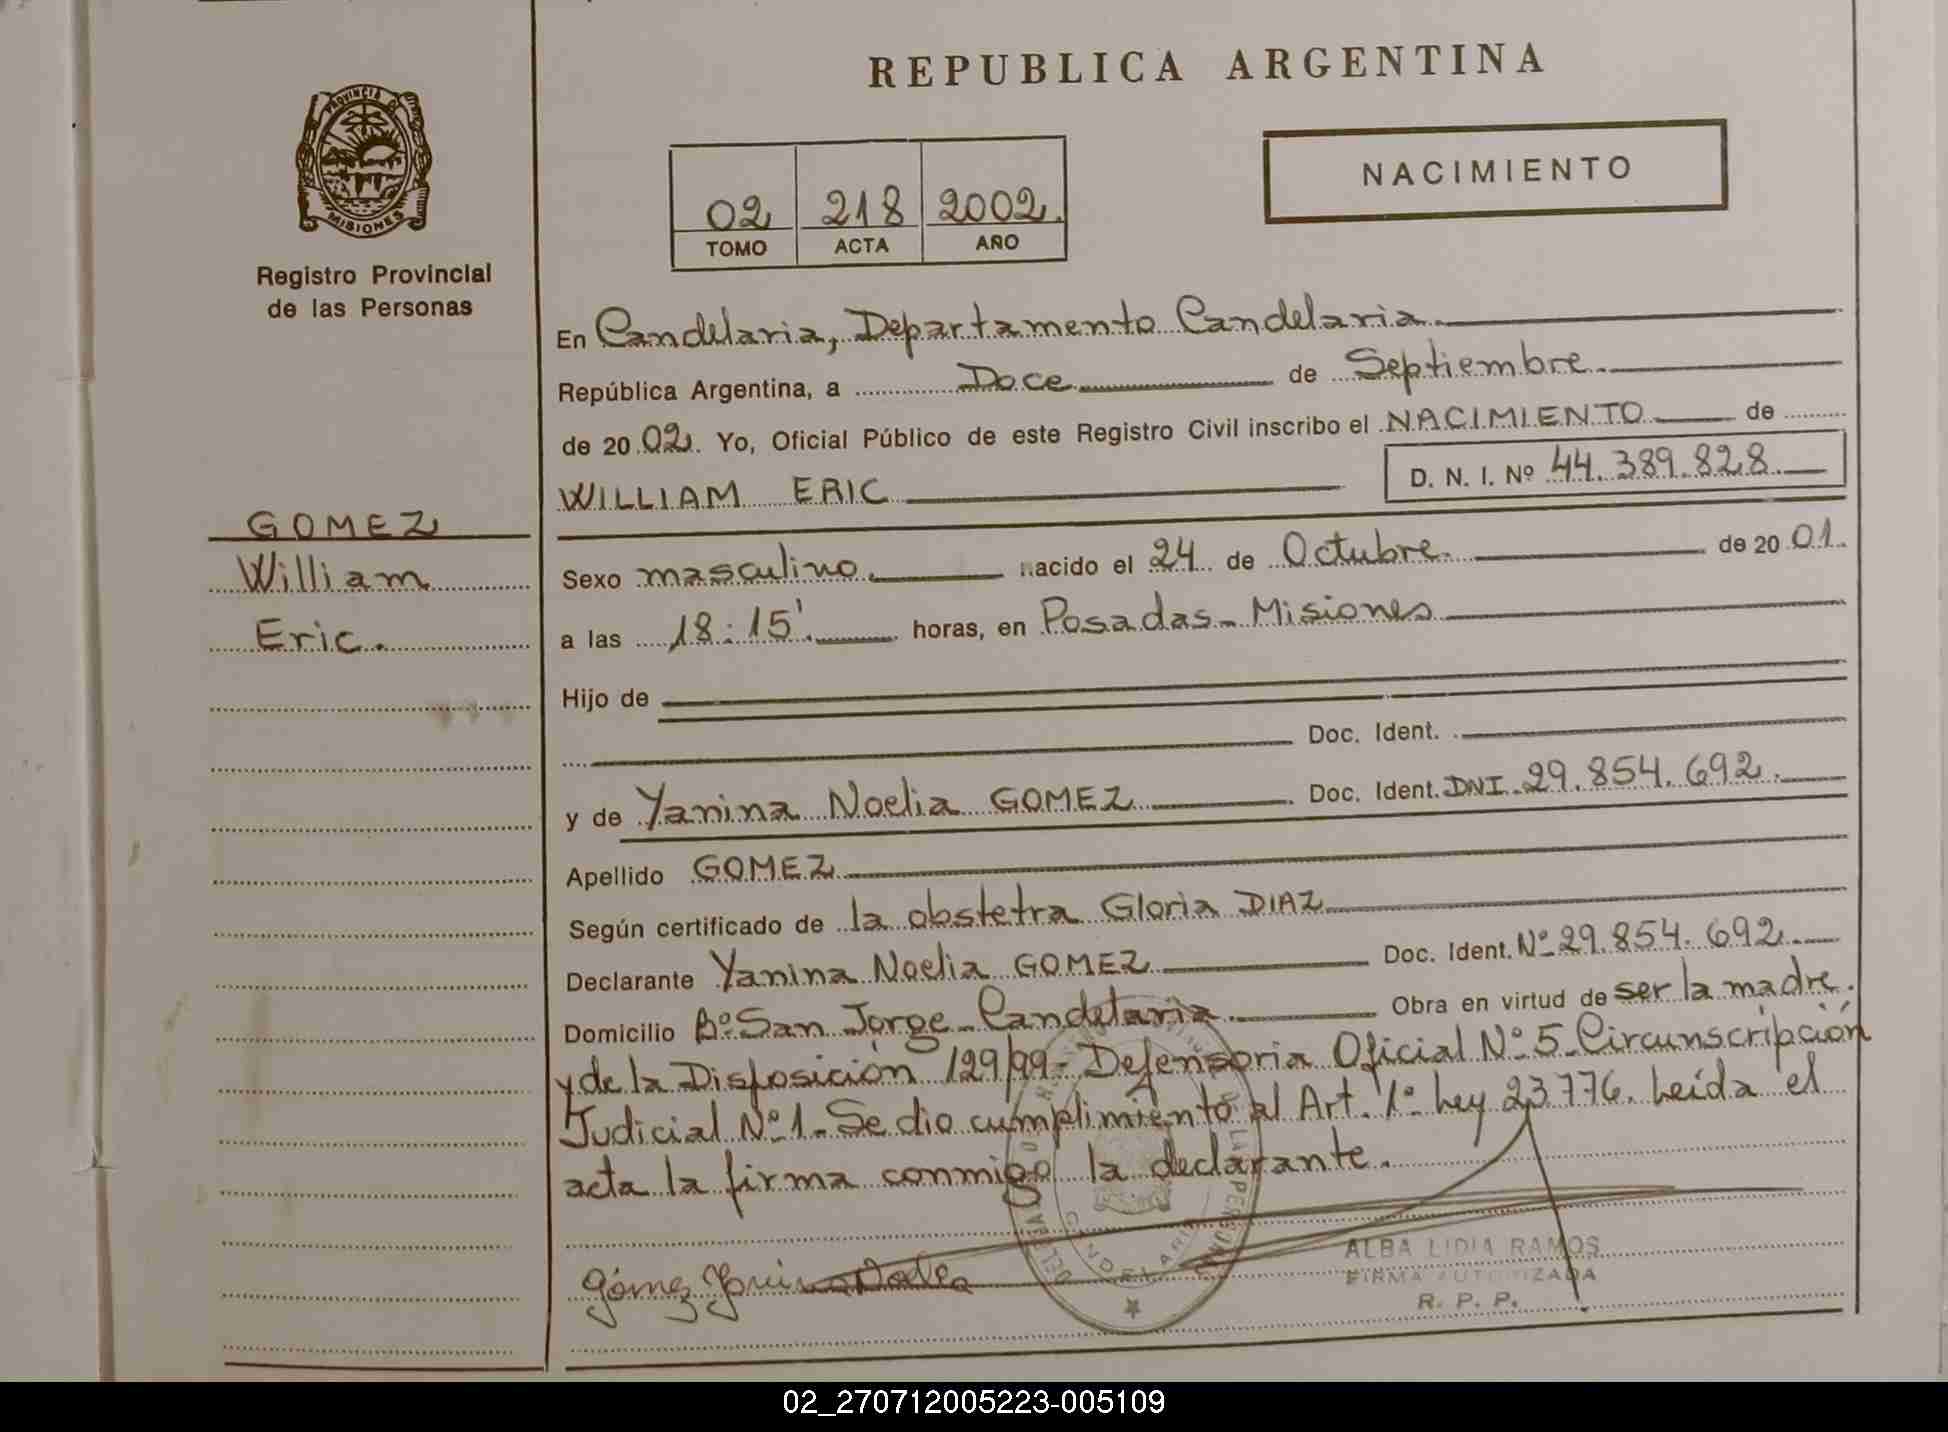 REPUBLICA ARGENTINA
PROVINCIA DE
MISIONES
Registro Provincial
de las Personas
NACIMIENTO
02 218 2002.
TOMO ACTA AÑO
GOMEZ
William
Eric.
En Candelaria, Departamento Candelaria.
República Argentina, a Doce de Septiembre.
de 20 02. Yo, Oficial Público de este Registro Civil inscribo el NACIMIENTO de
WILLIAM ERIC D. N. I. Nº 44.389.828.
Sexo masculino. nacido el 24 de Octubre. de 20 01.
a las 18:15'. horas, en Posadas - Misiones
Hijo de
Doc. Ident.
y de Yanina Noelia GOMEZ Doc. Ident. DNI. 29.854.692.
Apellido GOMEZ
Según certificado de la obstetra Gloria DIAZ
Declarante Yanina Noelia GOMEZ Doc. Ident. Nº 29.854.692.
Domicilio Bº San Jorge - Candelaria. Obra en virtud de ser la madre.
y de la Disposición 129/99 - Defensoria Oficial Nº 5 - Circunscripción
Judicial Nº 1 - Se dio cumplimiento al Art. 1º Ley 23776. Leída el
acta la firma conmigo la declarante.
Gómez
ALBA LIDIA RAMOS
FIRMA AUTORIZADA
R. P. P.
02_270712005223-005109